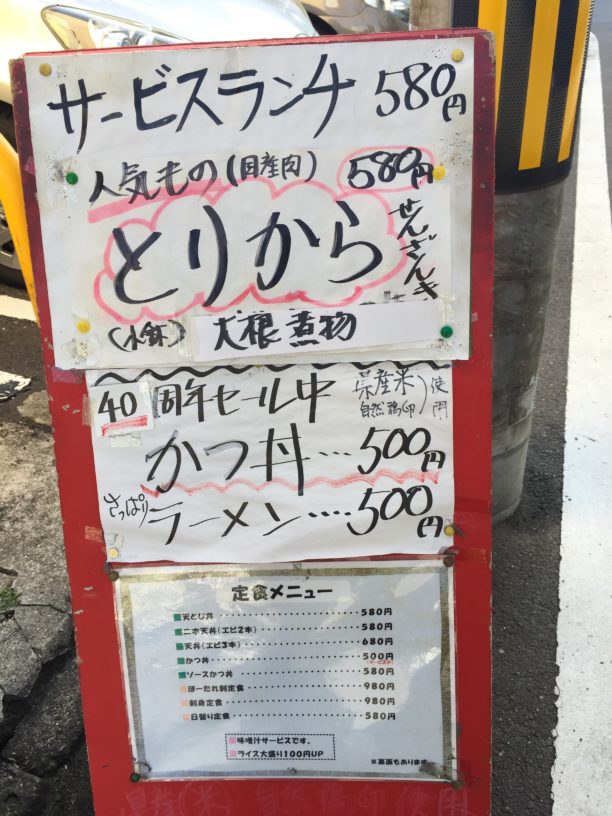 サービスランチ 580円
人気もの(国産肉) 580円
とりから せんざんき
(小鉢) 大根煮物
40周年セール中 県産米 自然鶏卵)使用
かつ丼…500円
さっぱり ラーメン….500円
定食メニュー
天とじ丼 580円
二本天丼(エビ2本) 580円
天丼(エビ3本) 680円
かつ丼 500円
ソースかつ丼 580円
ほーたれ刺定食 980円
刺身定食 980円
日替り定食 580円
味噌汁サービスです。
ライス大盛り100円UP
※裏面もあります